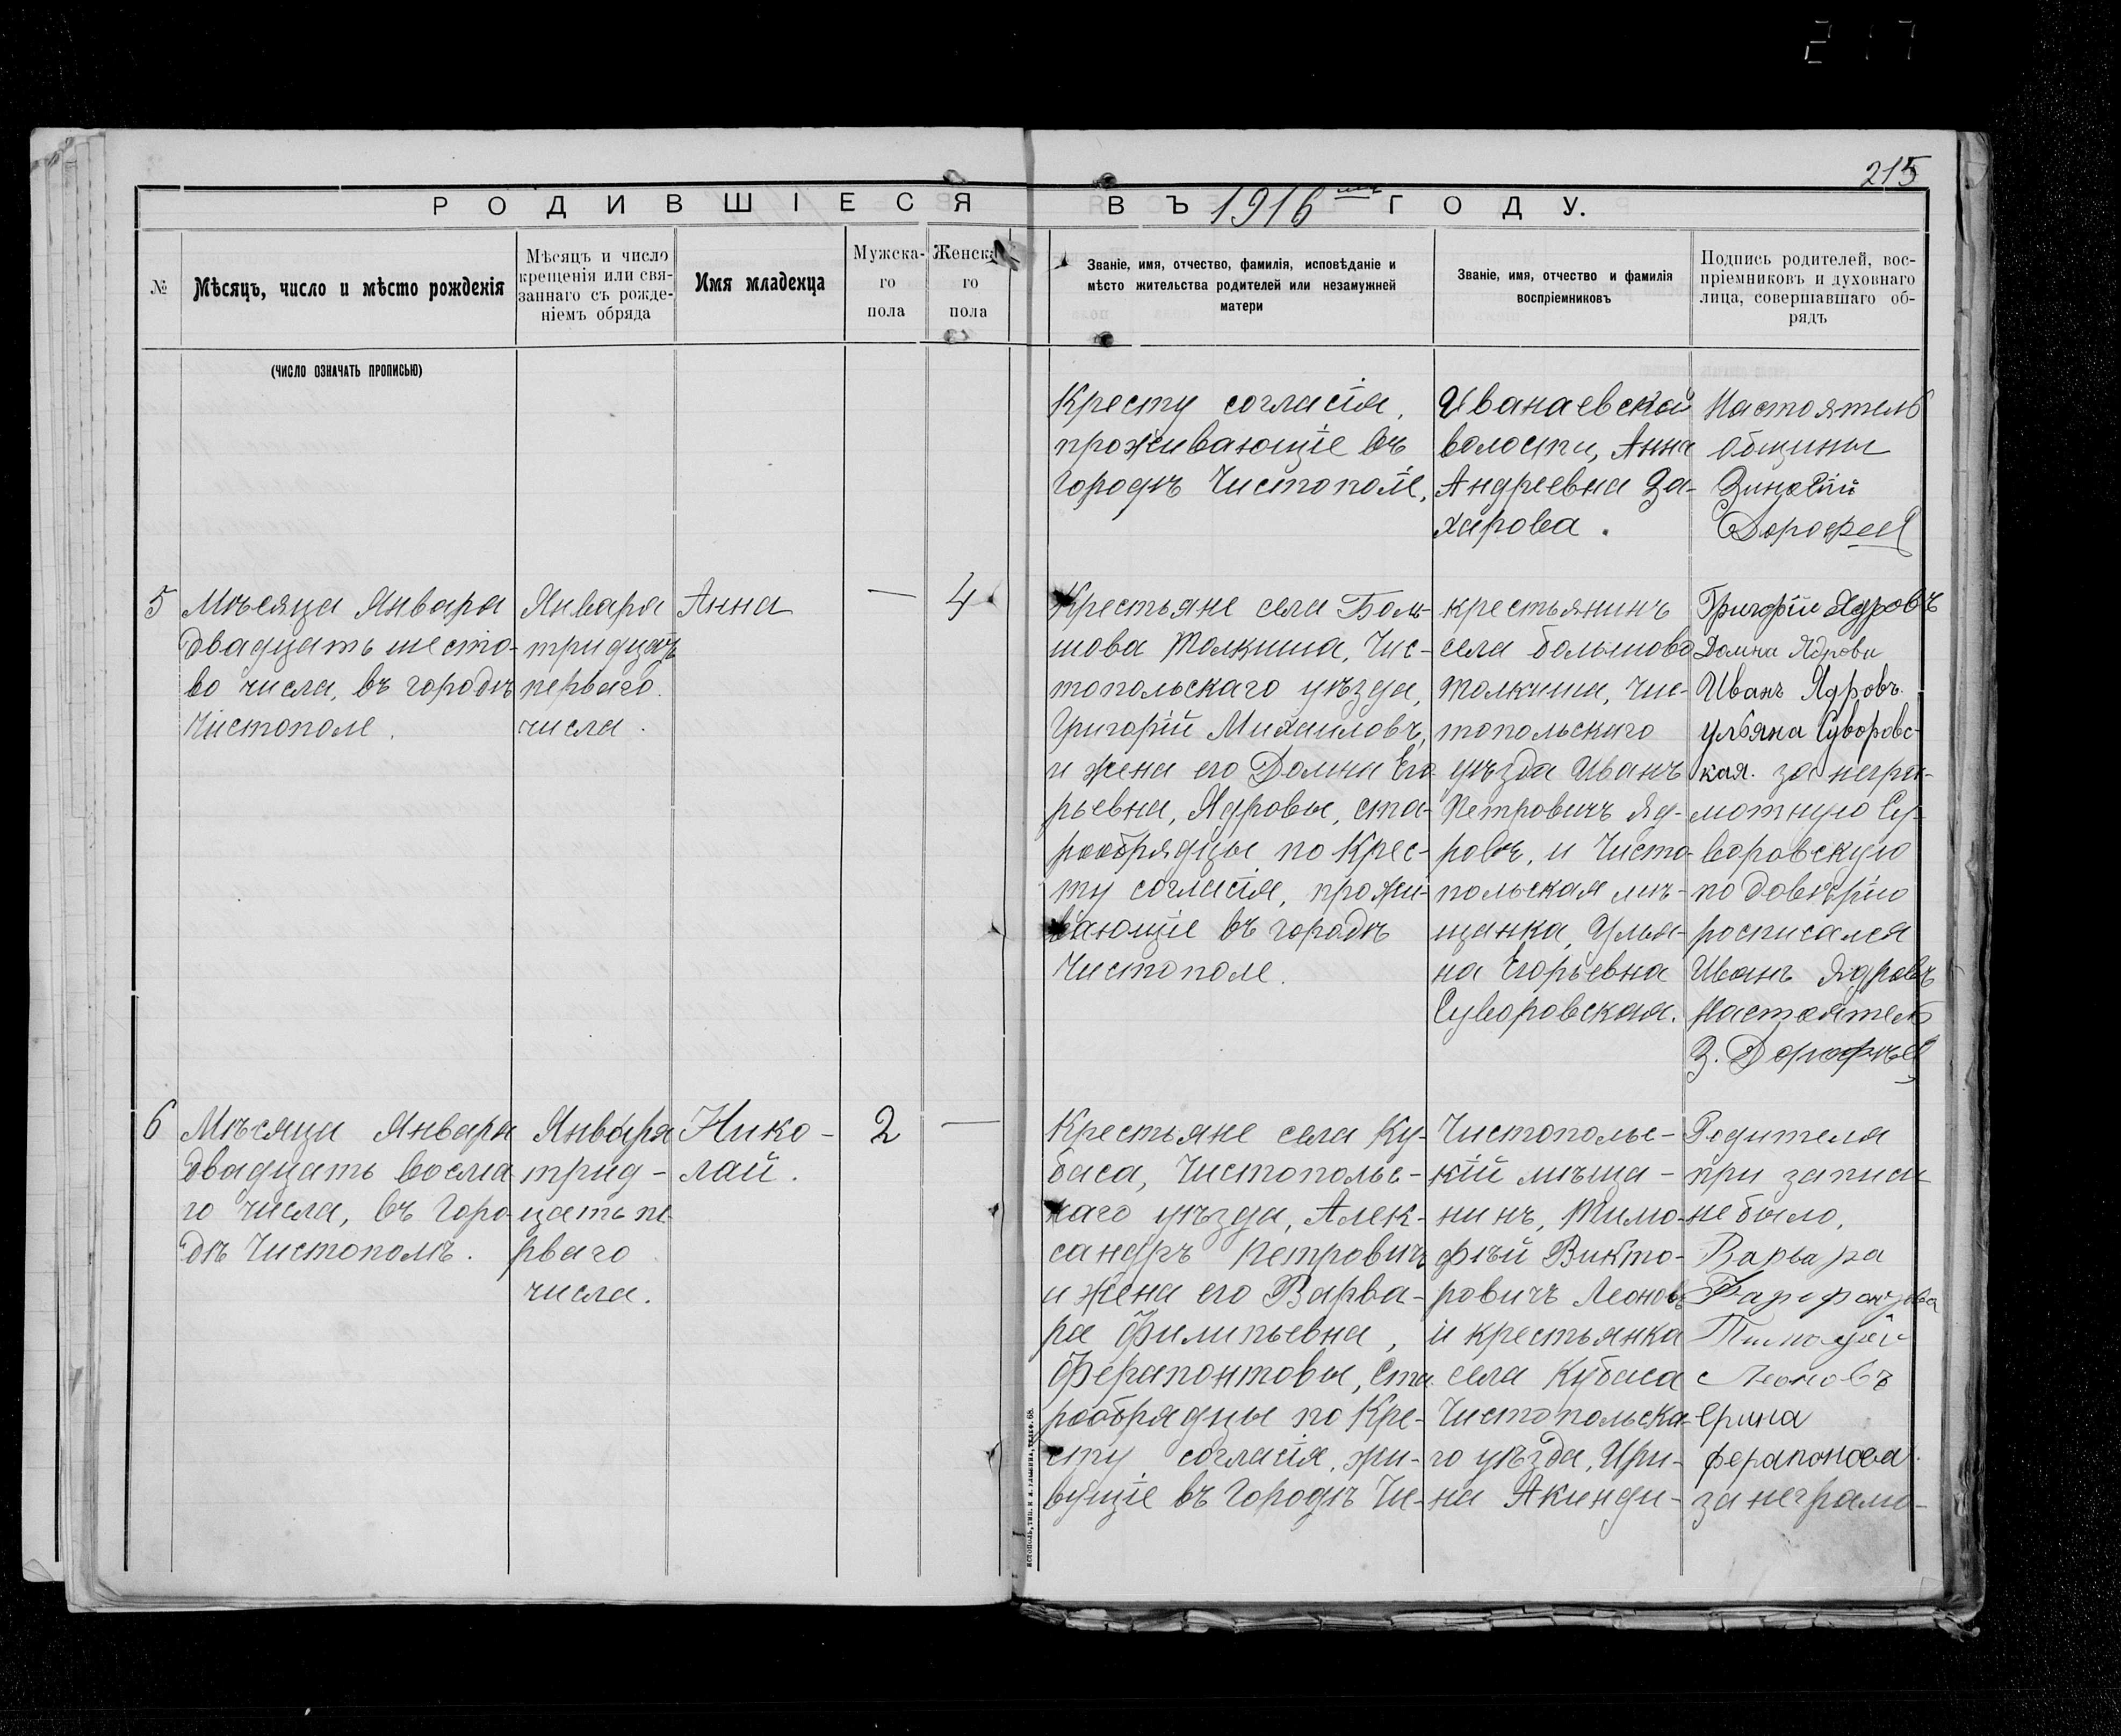 217
215
РОДИВШІЕСЯ ВЪ 1916 мъ ГОДУ.
№
Мѣсяцъ, число и мѣсто рожденія
Мѣсяцъ и число
крещенія или свя-
заннаго съ рожде-
ніемъ обряда
Имя младенца
Мужска-
го
пола
Женска-
го
пола
Званіе, имя, отчество, фамилія, исповѣданіе и
мѣсто жительства родителей или незамужней
матери
Званіе, имя, отчество и фамилія
воспріемниковъ
Подпись родителей, вос-
пріемниковъ и духовнаго
лица, совершавшаго об-
рядъ
(ЧИСЛО ОЗНАЧАТЬ ПРОПИСЬЮ)
Кресту согласія,
проживающіе въ
городѣ Чистополе,
Иванаевской
волости, Анна
Андреевна За-
харова.
Настоятель
общины
Зиновій
Дорофеев
5
Мѣсяца Января
двадцать шесто-
во числа, въ городѣ
Чистополе.
Января
тридцать
перваго
числа.
Анна
—
4
Крестьяне села Боль-
шова Толкиша, Чис-
топольскаго уѣзда,
Григорій Михаиловъ,
и жена его Домна Его-
рьевна, Ядровы, ста-
рообрядцы по Крес-
ту согласія, прожи-
вающіе въ городѣ
Чистополе.
крестьянинъ
села большово
Толкиша, Чис-
топольскаго
уѣзда Иванъ
Петровичъ Яд-
ровъ, и Чисто-
польская мѣ-
щанка, Улья-
на Егорьевна
Суворовская.
Григорій Ядровъ
Домна Ядрова
Иванъ Ядровъ.
ульяна Суворовс-
кая. за негра-
мотную Су-
воровскую
по довѣрію
росписался
Иванъ Ядровъ
Настоятель
З. Дорофѣев
6
Мѣсяца Января
двадцать восма-
го числа, въ Горо-
дѣ Чистополѣ.
Января
трид-
цать пе-
рваго
числа.
Нико-
лай.
2
—
Крестьяне села Ку-
баса, Чистопольс-
каго уѣзда, Алек-
сандръ Петровичъ
и жена его Варва-
ра Филипьевна,
Ферапонтовы, Ста-
рообрядцы по Кре-
сту согласія, жи-
вущіе въ Городѣ Чи-
Чистопольс-
кій мѣща-
нинъ, Тимо-
фѣй Викто-
ровичъ Леоновъ
и крестьянка
села Кубаса
Чистопольска-
го уѣзда, Ири-
на Акинди-
Родителя
при записи
не было,
Варвара
Тимофѣй
Леоновъ
ерина
ферапонова
за неграмо-